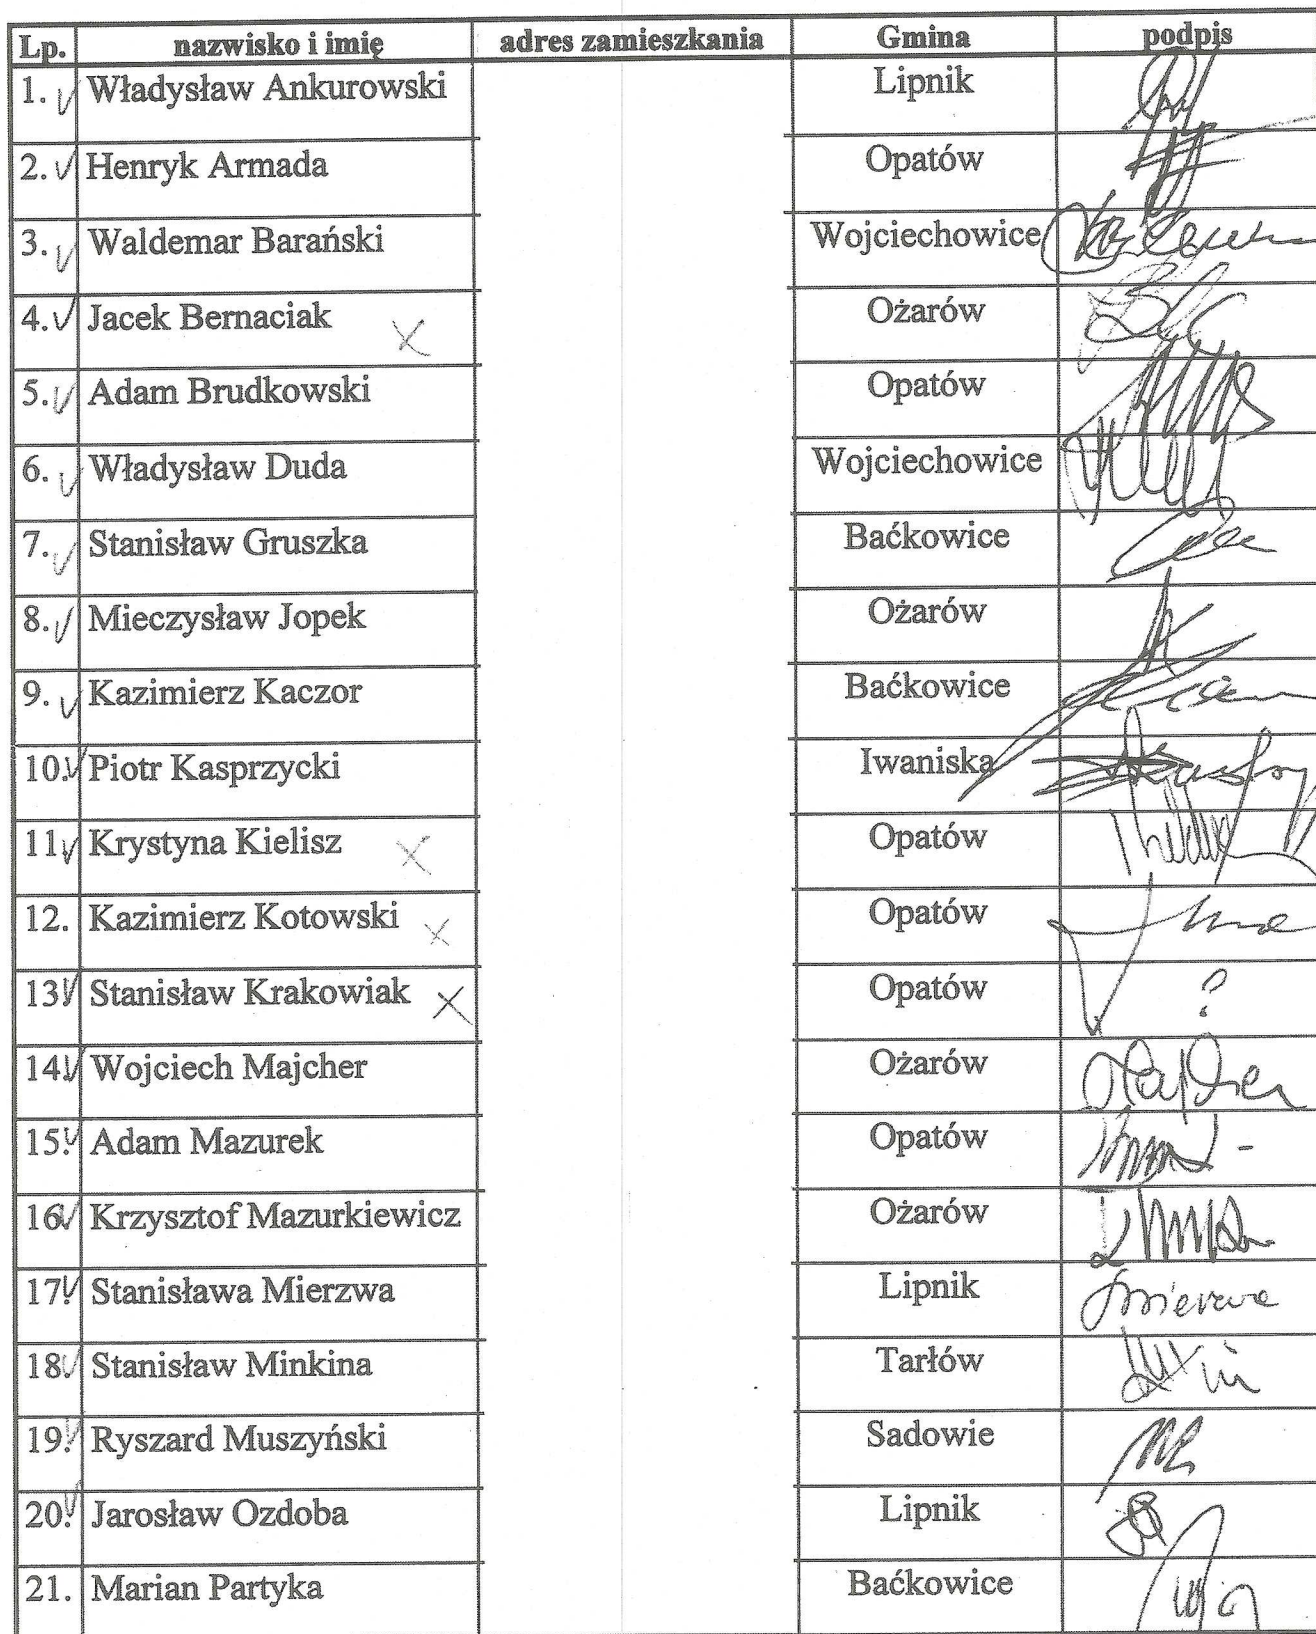 Lp. nazwisko i imię adres zamieszkania Gmina podpis
1. Władysław Ankurowski Lipnik
2. Henryk Armada Opatów
3. Waldemar Barański Wojciechowice
4. Jacek Bernaciak Ożarów
5. Adam Brudkowski Opatów
6. Władysław Duda Wojciechowice
7. Stanisław Gruszka Baćkowice
8. Mieczysław Jopek Ożarów
9. Kazimierz Kaczor Baćkowice
10. Piotr Kasprzycki Iwaniska
11. Krystyna Kielisz Opatów
12. Kazimierz Kotowski Opatów
13. Stanisław Krakowiak Opatów ?
14. Wojciech Majcher Ożarów
15. Adam Mazurek Opatów
16. Krzysztof Mazurkiewicz Ożarów
17. Stanisława Mierzwa Lipnik
18. Stanisław Minkina Tarłów
19. Ryszard Muszyński Sadowie
20. Jarosław Ozdoba Lipnik
21. Marian Partyka Baćkowice